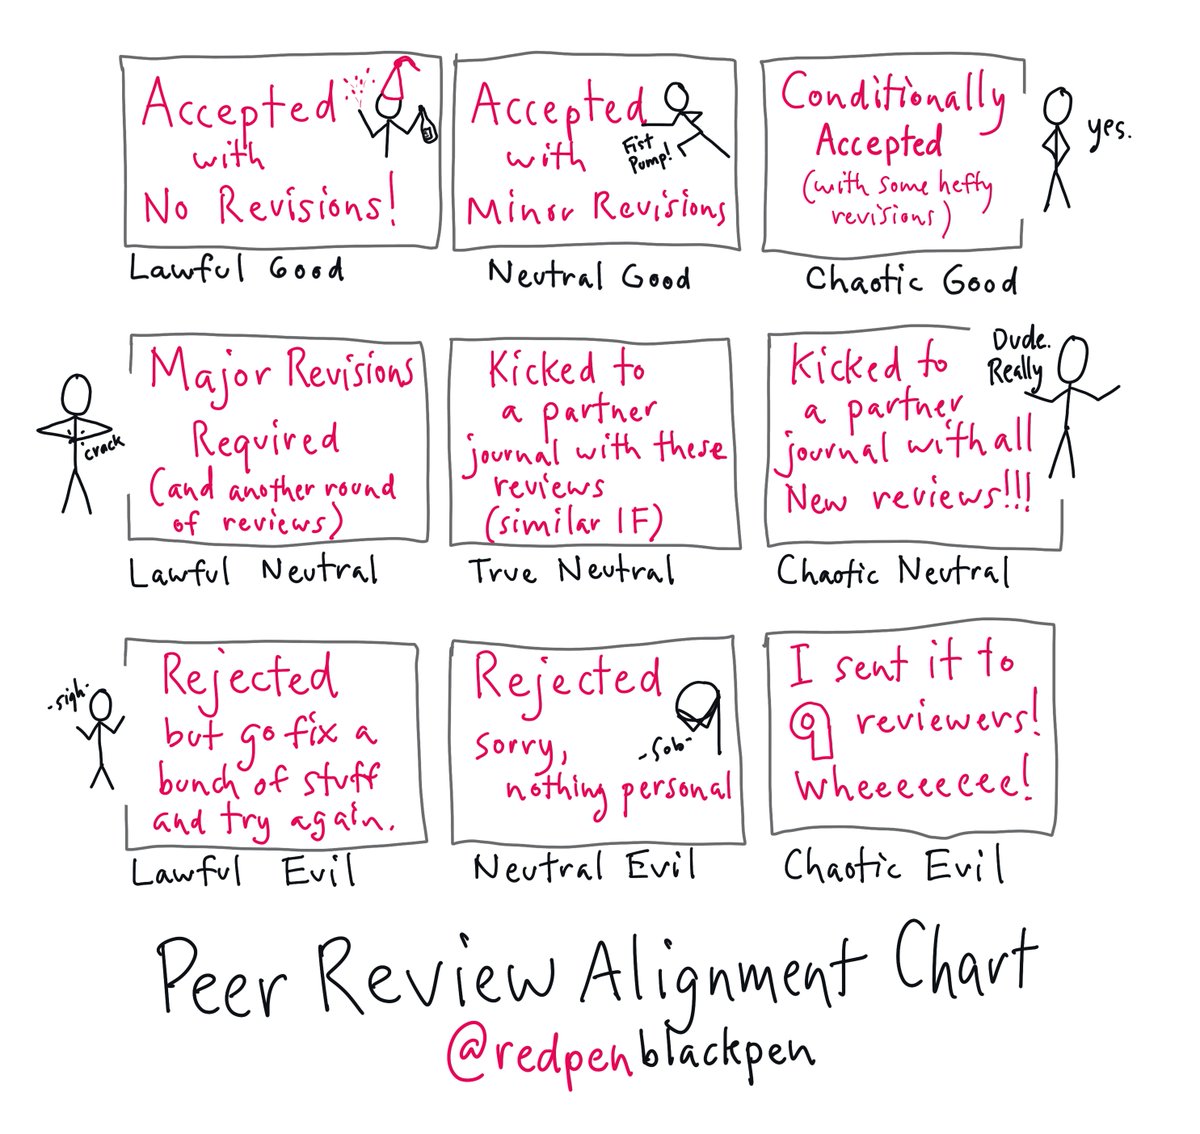 Accepted
with
No Revisions!
Lawful Good
Accepted
with
Fist
Pump!
Minor Revisions
Neutral Good
Conditionally
Accepted
(with some hefty
revisions)
yes.
Chaotic Good
Major Revisions
Required
(and another round
of reviews)
crack
Lawful Neutral
Kicked to
a partner
journal with these
reviews
(similar IF)
True Neutral
Kicked to
a partner
journal with all
New reviews!!!
Dude.
Really
Chaotic Neutral
-sigh-
Rejected
but go fix a
bunch of stuff
and try again.
Lawful Evil
Rejected
sorry,
nothing personal
-sob-
Neutral Evil
I sent it to
9 reviewers!
Wheeeeeeee!
Chaotic Evil
Peer Review Alignment Chart
@redpenblackpen